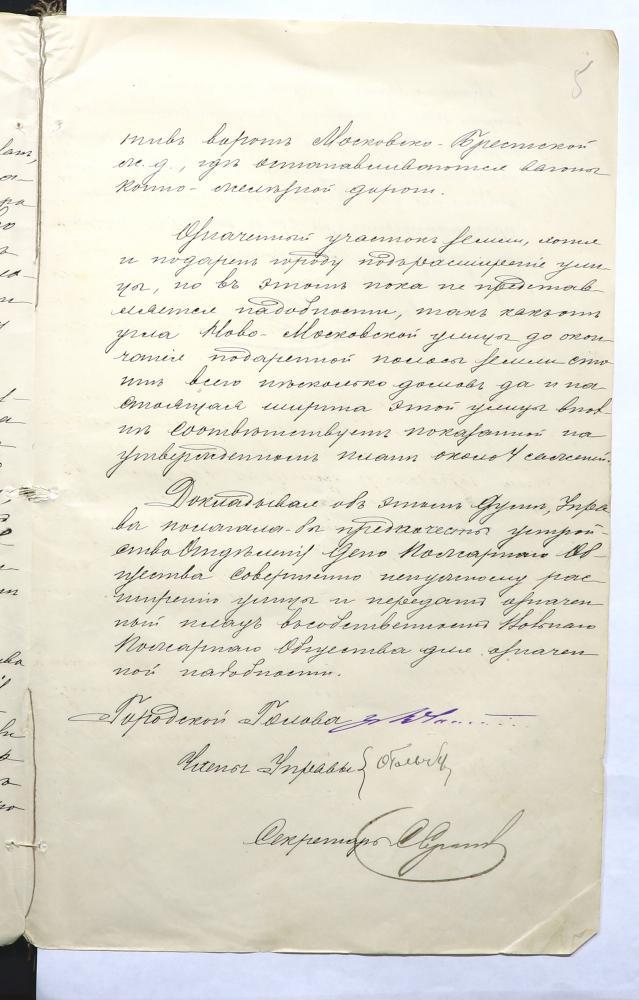 5
тивъ воротъ Московско-Брестской
ж. д., гдѣ останавливаются вагоны
конно-желѣзной дороги.
Означенный участокъ земли, хотя
и подаренъ городу подъ расширеніе ули-
цы, но въ этомъ пока не представ
ляется надобности, такъ какъ отъ
угла Ново-Московской улицы до окон-
чанія подаренной полосы земли сто
итъ всего нѣсколько домовъ да и на
стоящая ширина этой улицы впол
нѣ соотвѣтствуетъ показанной на
утвержденномъ планѣ около 4 саженей.
Докладывая объ этомъ Думѣ, Упра
ва полагала-бы предпочесть устрой-
ство Отдѣленія Депо Пожарнаго Об-
щества совершенно ненужному рас
ширенію улицы и передать означен
ный плацъ въ собственность Вольнаго
Пожарнаго Общества для означен
ной надобности.
Городской Голова
Члены Управы
Секретарь